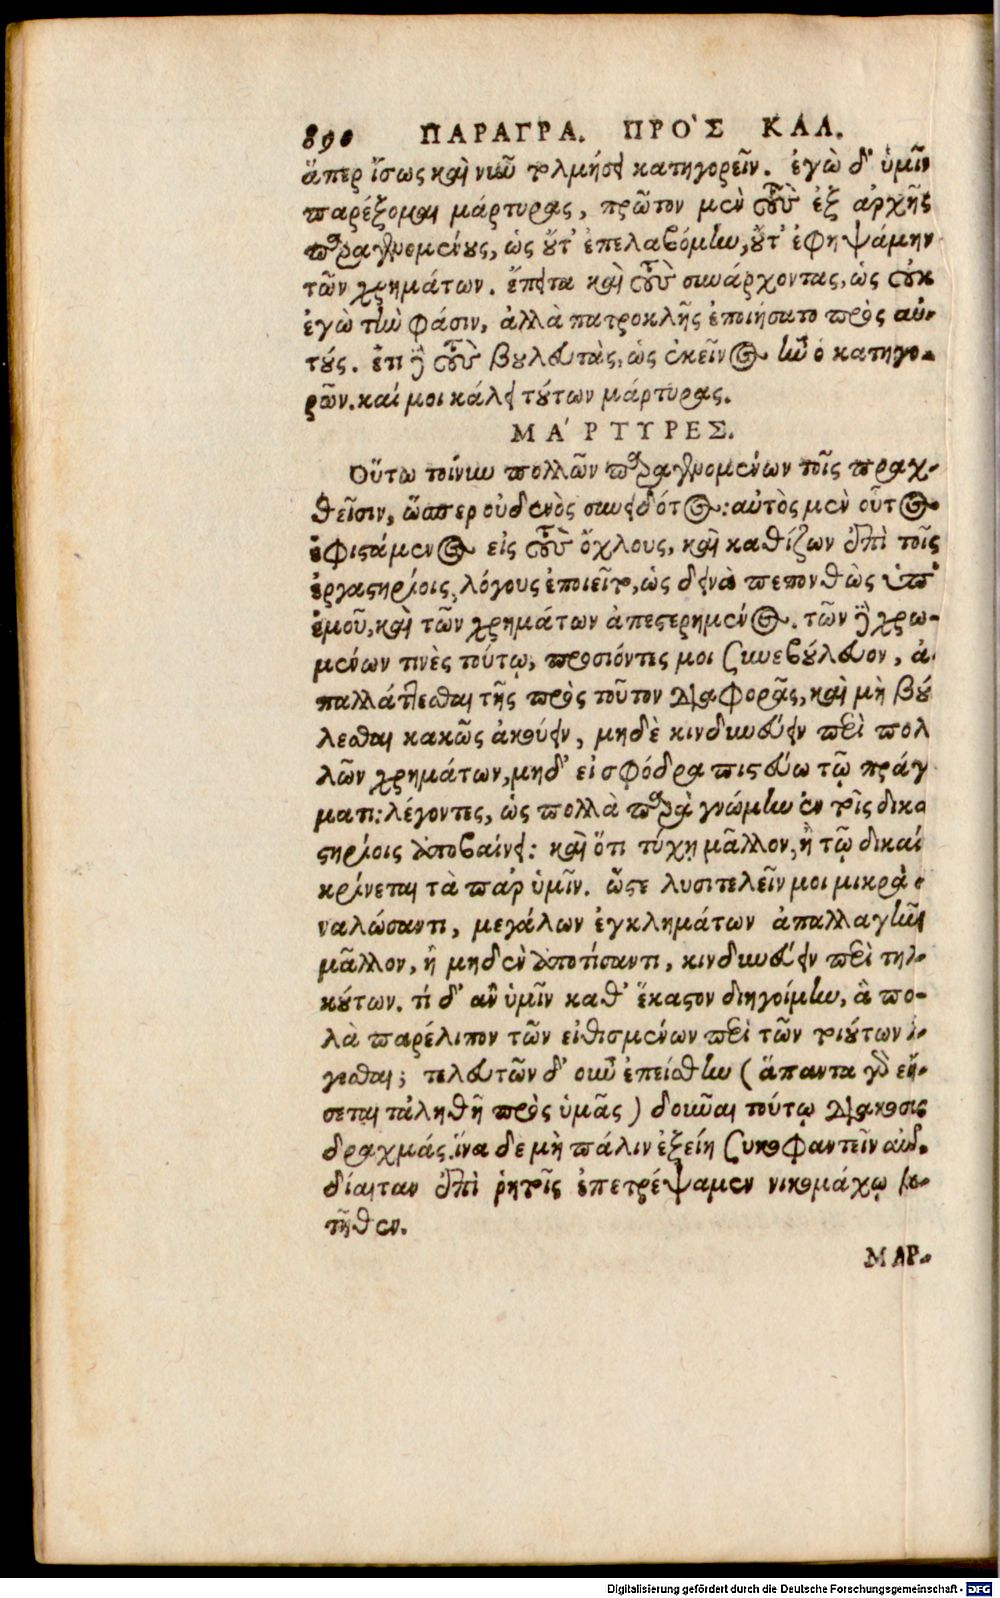 890 ΠΑΡΑΓΡΑ. ΠΡΟ'Σ ΚΑΛ.
ἅπερ ἴσως καὶ νῦν τολμήσει κατηγορεῖν. ἐγὼ δ' ὑμῖν
παρέξομαι μάρτυρας, πρῶτον μὲν τοὺς ἐξ ἀρχῆς
παραγενομένους, ὡς οὔτ' ἐπελαβόμην, οὔτ' ἐφηψάμην
τῶν χρημάτων. ἔπειτα καὶ τοὺς συνάρχοντας, ὡς οὐκ
ἐγὼ τὴν φάσιν, ἀλλὰ πατροκλῆς ἐποιήσατο πρὸς αὐ-
τούς. ἔτι δὲ τοὺς βουλευτὰς, ὡς ἐκεῖνος ἦν ὁ κατηγο-
ρῶν. καί μοι κάλει τούτων μάρτυρας.
ΜΑ'ΡΤΥΡΕΣ.
Οὕτω τοίνυν πολλῶν παραγενομένων τοῖς πραχ-
θεῖσιν, ὥσπερ οὐδενὸς συνειδότος: αὐτὸς μὲν οὗτος
ἐφιστάμενος εἰς τοὺς ὄχλους, καὶ καθίζων ἐπὶ τοῖς
ἐργαστηρίοις, λόγους ἐποιεῖτο, ὡς δεινὰ πεπονθὼς ὑπ'
ἐμοῦ, καὶ τῶν χρημάτων ἀπεστερημένος. τῶν δὲ χρω-
μένων τινὲς τούτῳ, προσιόντες μοι συνεβούλευον, ἀ-
παλλάττεσθαι τῆς πρὸς τοῦτον διαφορᾶς, καὶ μὴ βού
λεσθαι κακῶς ἀκούειν, μηδὲ κινδυνεύειν περὶ πολ
λῶν χρημάτων, μηδ' εἰ σφόδρα πιστεύω τῷ πράγ
ματι: λέγοντες, ὡς πολλὰ παρὰ γνώμην ἐν τοῖς δικα
στηρίοις ἀποβαίνει: καὶ ὅτι τύχῃ μᾶλλον, ἢ τῷ δικαί
κρίνεται τὰ παρ' ὑμῖν. ὥστε λυσιτελεῖν μοι μικρὰ
ναλώσαντι, μεγάλων ἐγκλημάτων ἀπαλλαγῆναι
μᾶλλον, ἢ μηδὲν ἀποτίσαντι, κινδυνεύειν περὶ τηλ-
κούτων. τί δ' ἂν ὑμῖν καθ' ἕκαστον διηγοίμην, ἃ πο-
λὰ παρέλιπον τῶν εἰθισμένων περὶ τῶν τοιούτων λ-
γεσθαι; τελευτῶν δ' οὖν ἐπείσθην (ἅπαντα γὰρ εἰ-
σεται τἀληθῆ πρὸς ὑμᾶς) δοῦναι τούτῳ διακοσίας
δραχμάς. ἵνα δὲ μὴ πάλιν ἐξείη συκοφαντεῖν αὐ-
δίαιταν ἐπὶ ῥητοῖς ἐπετρέψαμεν νικομάχῳ
τῆθεν.
ΜΑΡ-
Digitalisierung gefördert durch die Deutsche Forschungsgemeinschaft - DFG